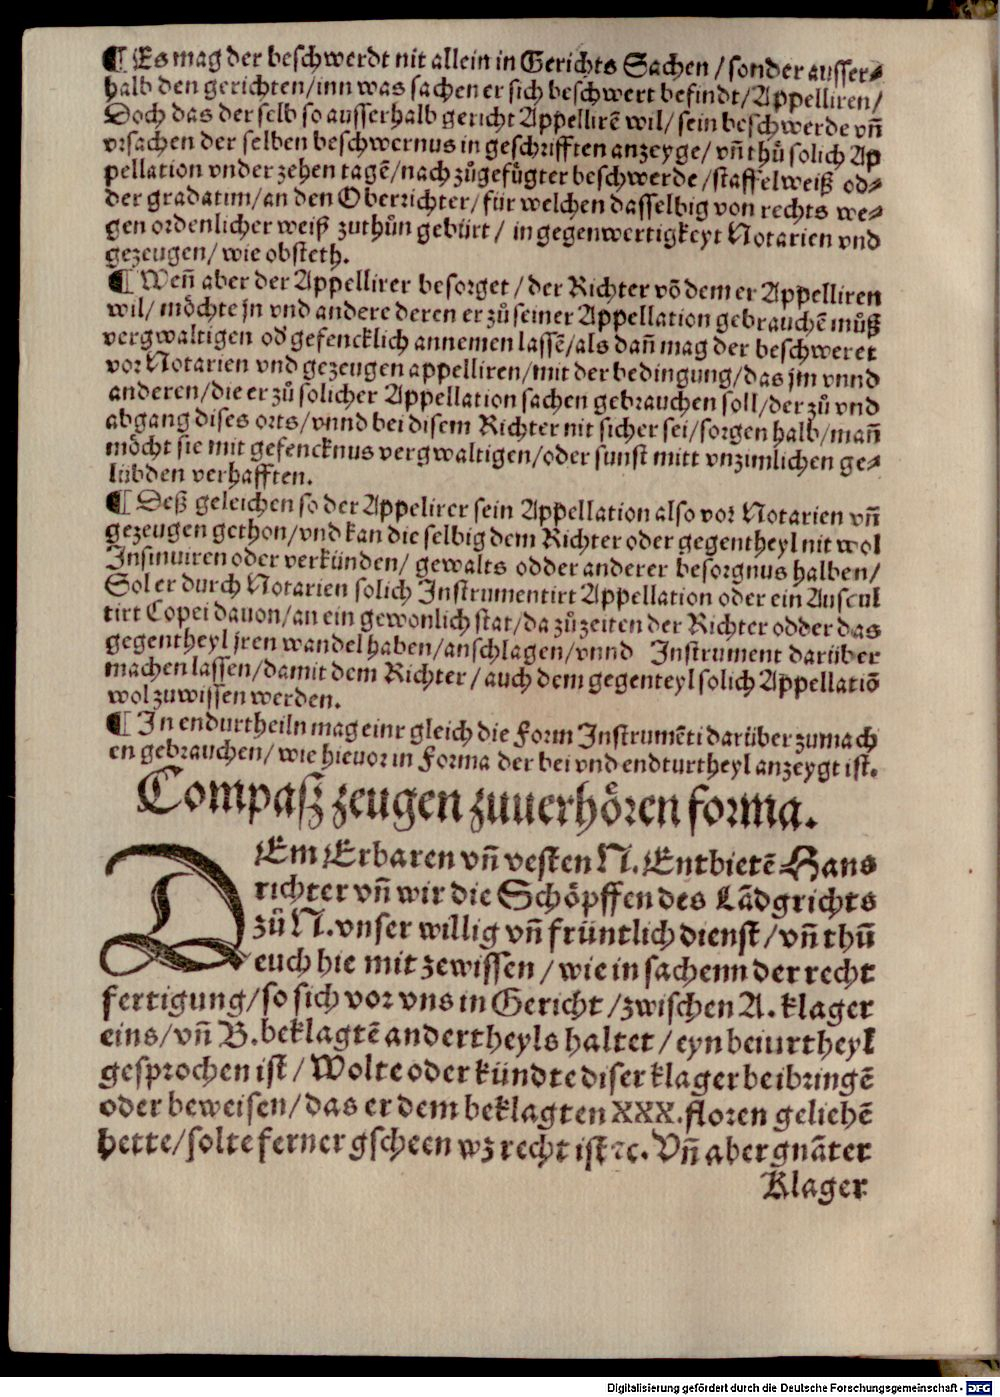 ¶ Es mag der beschwerdt nit allein in Gerichts Sachen / sonder ausser⸗
halb den gerichten / inn was sachen er sich beschwert befindt / Appelliren /
Doch das der selb so ausserhalb gericht Appellirẽ wil / sein beschwerde vñ
vrsachen der selben beschwernus in geschrifften anzeyge / vñ thů solich Ap
pellation vnder zehen tagẽ / nach zůgefůgter beschwerde / staffelweiß od⸗
der gradatim / an den Oberrichter / für welchen dasselbig von rechts we⸗
gen ordenlicher weiß zuthůn gebürt / in gegenwertigkeyt Notarien vnd
gezeugen / wie obsteth.
¶ Weñ aber der Appellirer besorget / der Richter võ dem er Appelliren
wil / möchte jn vnd andere deren er zů seiner Appellation gebrauchẽ můß
vergwaltigen od' gefencklich annemen lassẽ / als dañ mag der beschweret
vor Notarien vnd gezeugen appelliren / mit der bedingung / das jm vnnd
anderen / die er zů solicher Appellation sachen gebrauchen soll / der zů vnd
abgang dises orts / vnnd bei disem Richter nit sicher sei / sorgen halb / mañ
möcht sie mit gefencknus vergwaltigen / oder sunst mitt vnzimlichen ge⸗
lübden verhafften.
¶ Deß geleichen so der Appelirer sein Appellation also vor Notarien vñ
gezeugen gethon / vnd kan die selbig dem Richter oder gegentheyl nit wol
Insinuiren oder verkünden / gewalts odder anderer besorgnus halben /
Sol er durch Notarien solich Instrumentirt Appellation oder ein Auscul
tirt Copei dauon / an ein gewonlich stat / da zůzeiten der Richter odder das
gegentheyl jren wandel haben / anschlagen / vnnd Instrument darüber
machen lassen / damit dem Richter / auch dem gegenteyl solich Appellatiõ
wol zuwissen werden.
¶ In endurtheiln mag einr gleich die Form Instrumẽti darüber zumach
en gebrauchen / wie hieuor in Forma der bei vnd endturtheyl anzeygt ist.
Compasz zeugen zuuerhören forma.
DEm Erbaren vñ vesten N. Entbietẽ Hans
richter vñ wir die Schöpffen des Lãdgrichts
zů N. vnser willig vñ früntlich dienst / vñ thů
euch hie mit zewissen / wie in sachenn der recht
fertigung / so sich vor vns in Gericht / zwischen A. klager
eins / vñ B. beklagtẽ andertheyls haltet / eyn beiurtheyl
gesprochen ist / Wolte oder kündte diser klager beibringẽ
oder beweisen / das er dem beklagten XXX. floren geliehẽ
hette / solte ferner gscheen wz recht ist ꝛc. Vñ aber gnãter
Klager
Digitalisierung gefördert durch die Deutsche Forschungsgemeinschaft - DFG